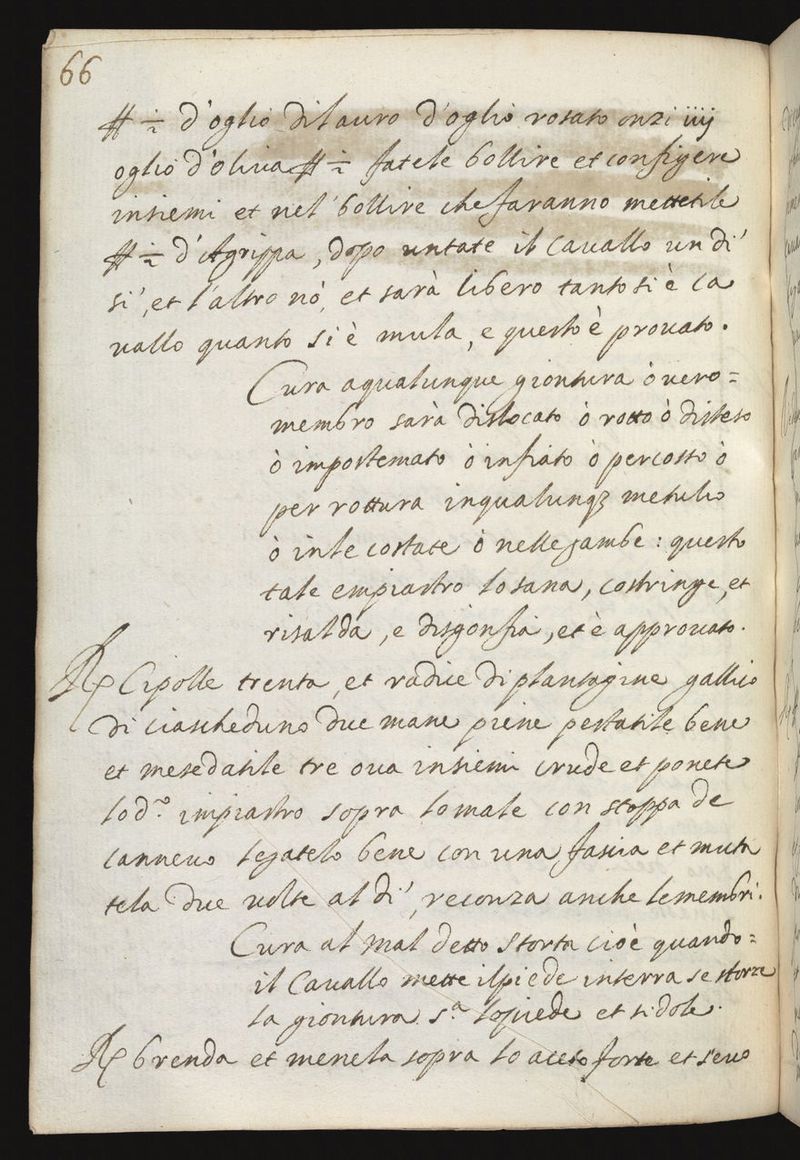 66
℔ ½ d'oglio di lauro d'oglio rosato onzi iiij
oglio d'oliua ℔ ½ fatele bollire et configere
insiemi et nel' bollire che faranno mettetile
℔ ½ d'Agrippa, dopo untate il Cauallo un dì
sì, et l'altro nò, et sarà libero tanto si è ca
uallo quanto si è mula, e questo è prouato.
Cura aqualunque giontura ò uero=
membro sarà dislocato ò rotto ò disteso
ò impostemato ò infiato ò percosso ò
per rottura inqualunqꝫ
ò in le costate ò nelle gambe: questo
tale empiastro lo sana, costringe, et
risalda, e disgonfia, et è approuato.
℞ Cipolle trenta, et radice di plantagine
di ciascheduno due mane piene pestatile bene
et mesedatile tre oua insiemi crude et ponete
lo d.º impiastro sopra lo male con stoppa de
canneuo legatelo bene con una fascia et muta
tela due uolte al dì, reconza anche le membri.
Cura al mal detto Storta cioè quando=
il Cauallo mette il piede in terra se storze
la giontura s.ª lo piede et si dole.
℞ brenda et menela sopra lo aceto forte et seuo